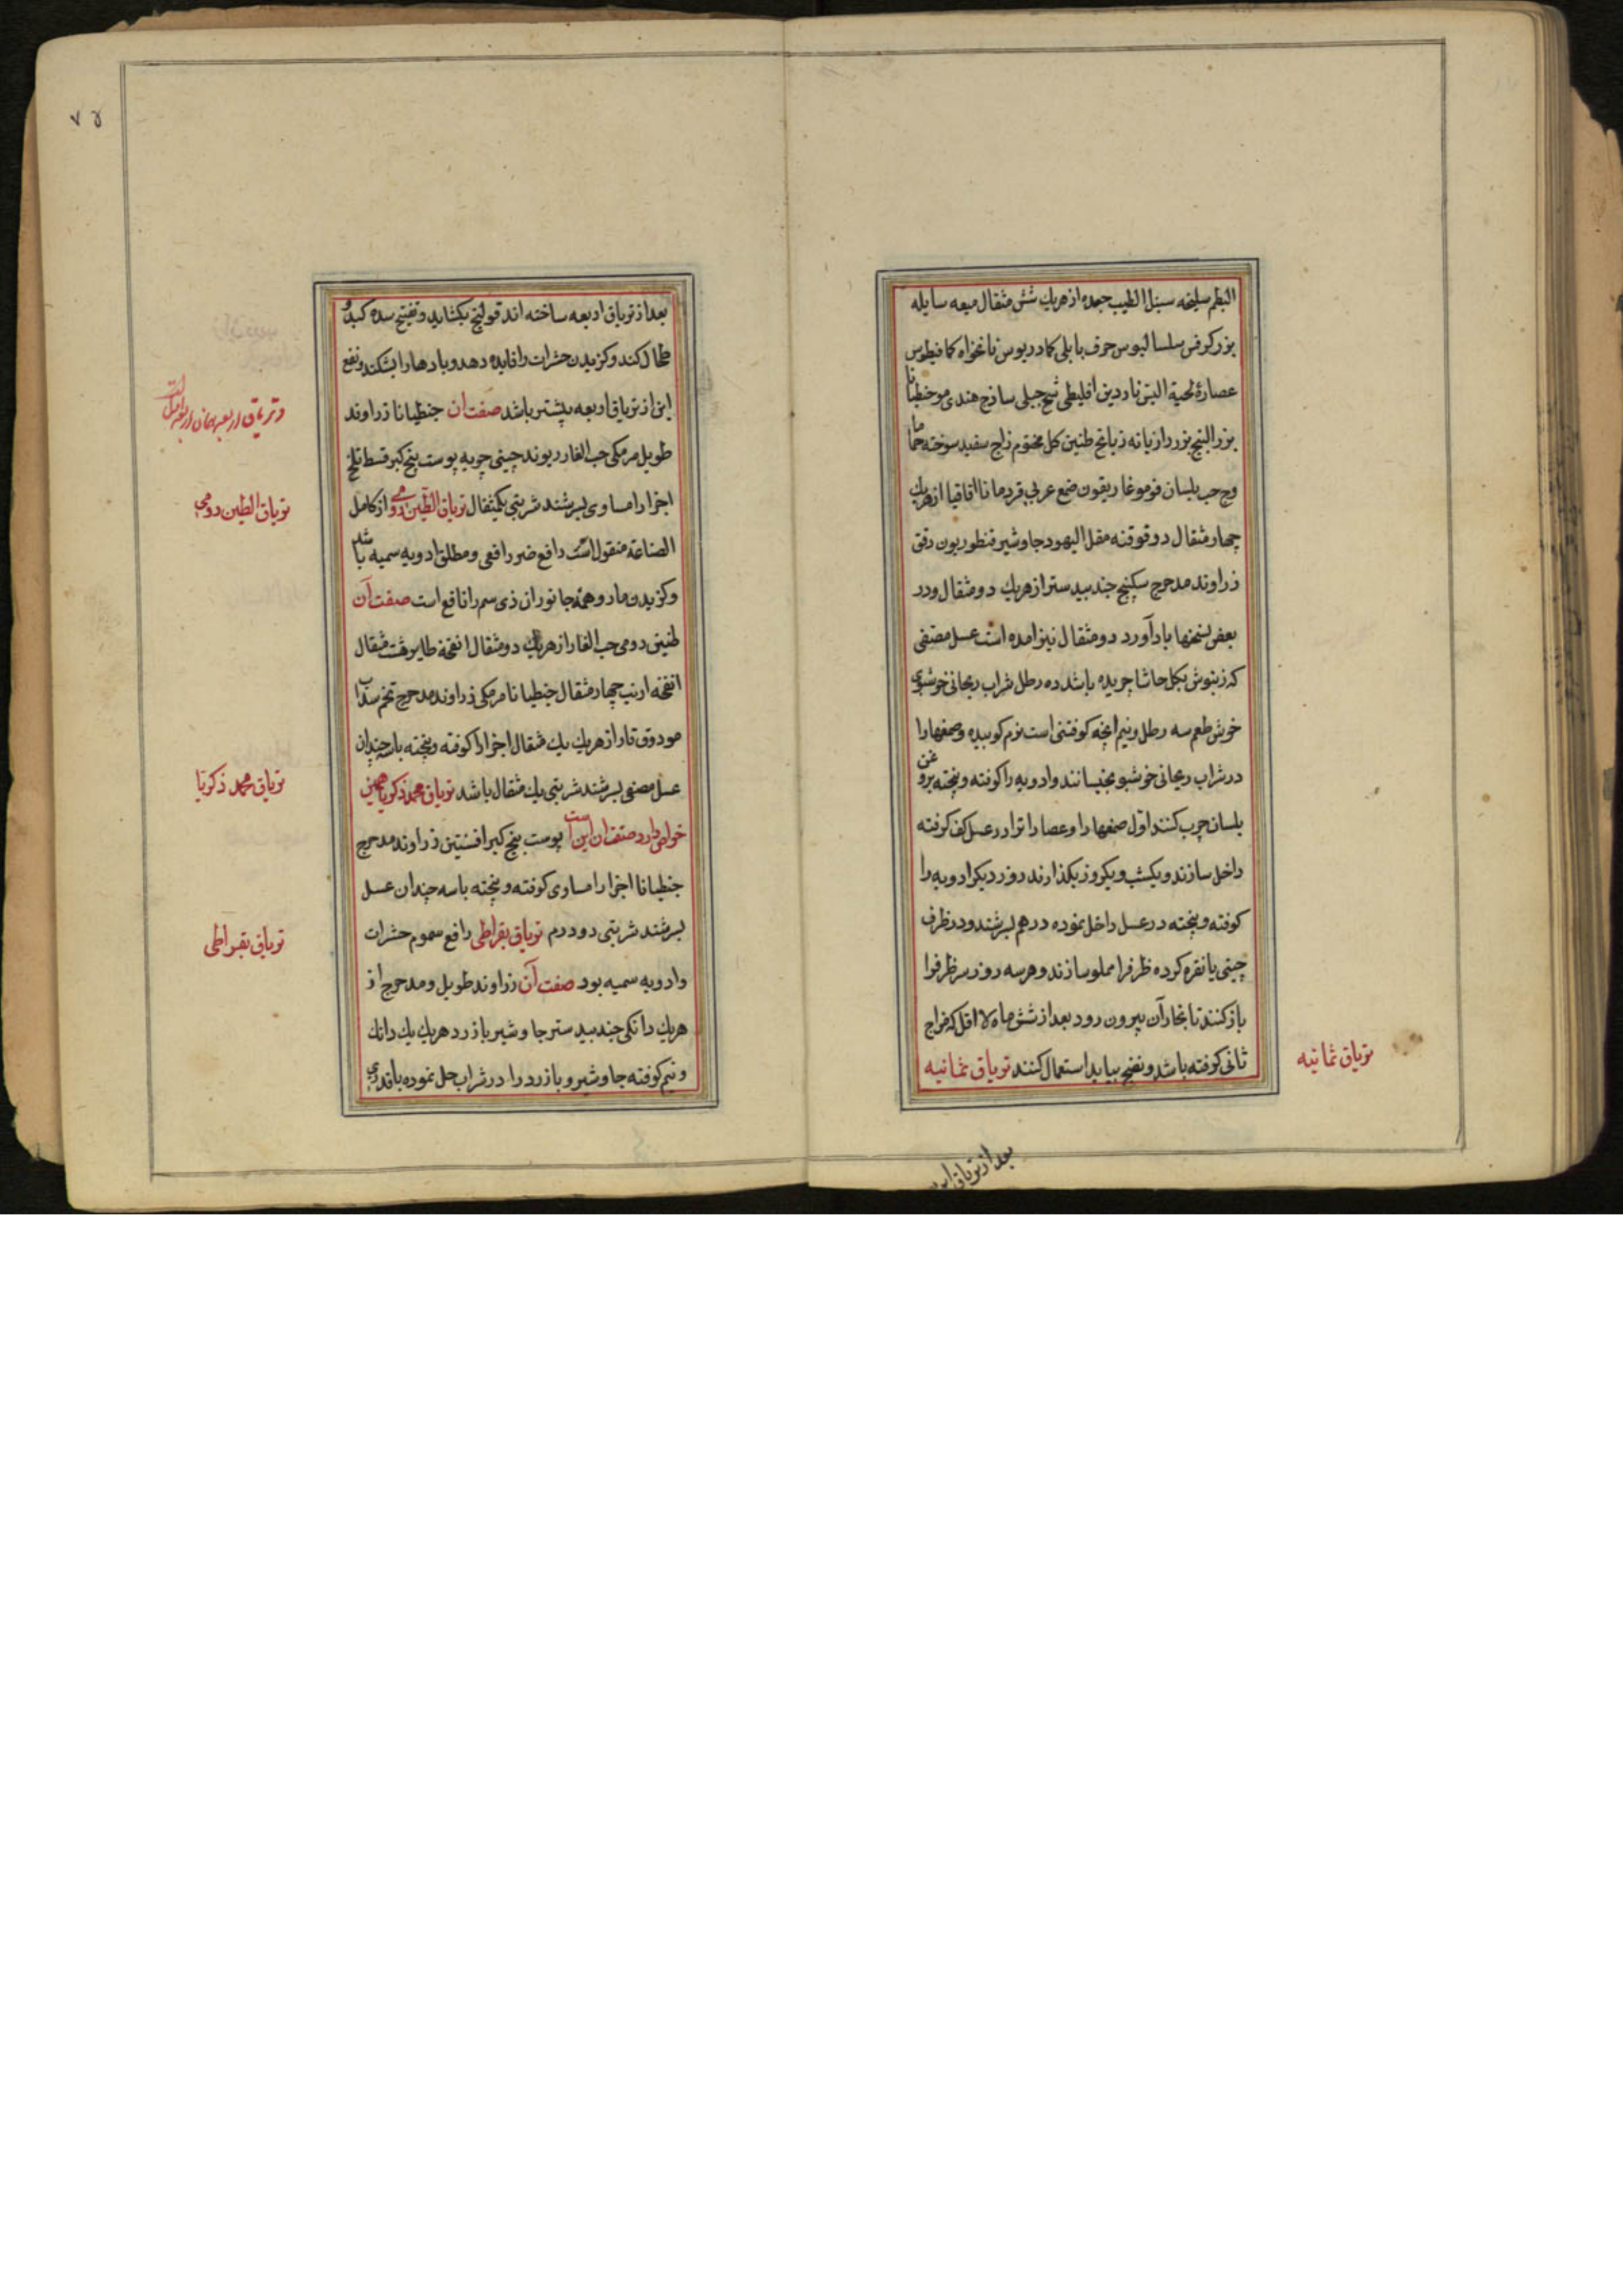 البطم سلیخه سنبل الطیب جعده از هریک شش مثقال میعه سایله
بزر کرفس سلسالیوس حرف بابلی کمادریوس نانخواه کمافیطوس
عصارهٔ لحیة التیس ناردین اقلیطی شیح جبلی ساذج هندی مو جنطیانا
بزر البنج بزر رازیانه زیانج طین کل مختوم زاج سفید سوخته حماما
وج حب بلسان فو موغاریقون صمغ عربی قردمانا اقاقیا از هریک
چهار مثقال دوقو قنه مقل الیهود جاوشیر قنطوریون دقق
زراوند مدحرج سکبینج جندبیدستر از هریک دو مثقال و در
بعض نسخها بادآورد دو مثقال نیز امده است عسل مصفی
که زنبوش بکل حاشا چریده باشد ده رطل شراب ریحانی خوشبوی
خوش طعم سه رطل و نیم انچه کوفتنی است نرم کوبیده و صمغها را
در شراب ریحانی خوشبو بخیسانند و ادویه را کوفته و بیخته بروغن
بلسان چرب کنند اول صمغها را و عصارا ترا در عسل کف کرفته
داخل سازند و یکشب و یکروز بکذارند روز دیکر ادویه را
کوفته و بیخته در عسل داخل نموده در هم بسرشند و در ظرف
چینی یا نقره کرده ظرفرا مملو سازند و هر سه روز سر ظرفرا
باز کنند تا بخار آن بیرون رود بعد از شش ماه لا اقل که مزاج
ثانی کوفته باشد و نضج بیابد استعمال کنند تریاق ثمانیه
تریاق ثمانیه
بعد از تریاق
۷۴
بعد از تریاق اربعه ساخته اند قولنج بکشاید و تفتیح سده کبد و
طحال کند و کزیدن حشرات را فایده دهد و بادها را بشکند و نفع
این از تریاق اربعه بیشتر باشد صفت ان جنطیانا زراوند
طویل مر مکی حب الغار ریوند چینی چربه پوست بیخ کبر قسط تلخ
اجزا را مساوی بسرشند شربتی یکمثقال تریاق الطین رومی از کامل
الصناعة منقول است دافع ضرر افعی و مطلق ادویه سمیه باشد
و کزیدن مار و همه جانوران ذی سم را نافع است صفت آن
طین رومی حب الغار از هریک دو مثقال انفخه طایر هشت مثقال
انفخه ارنب چهار مثقال جنطیانا مر مکی زراوند مدحرج تخم سداب
مو دوقتار از هریک یک مثقال اجزا را کوفته و بیخته با سه چندان
عسل مصفی بسرشند شربتی یک مثقال باشد تریاق محمد زکریا همین
خواص دارد صفت ان این است پوست بیخ کبر افسنتین زراوند مدحرج
جنطیانا اجزا را مساوی کوفته و بیخته با سه چندان عسل
بسرشند شربتی دو درم تریاق بقراطی رافع سموم حشرات
و ادویه سمیه بود صفت آن زراوند طویل و مدحرج از
هریک دانکی جندبیدستر جاوشیر بازرد هریک یک دانک
و نیم کوفته جاوشیر و بازرد را در شراب حل نموده باقدری
تریاق الطین رومی
تریاق محمد زکریا
تریاق بقراطی